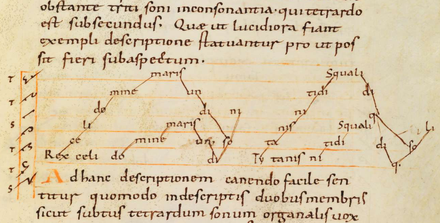 obstante triti soni inconsonantia. qui tetrardo
est subsecundus. Quae ut lucidiora fiant
exempli descriptione statuantur pro ut pos
sit fieri sub aspectum.
maris Squali
mine un tidi di
do di ni nis Squali q
li mine maris un so ta di so li
Rex celi do di Ty tanis ni tidi q
Ad hanc descriptionem canendo facile sen
titur quomodo in descriptis duobus membris
sicut subtus tetrardum sonum organalis vox